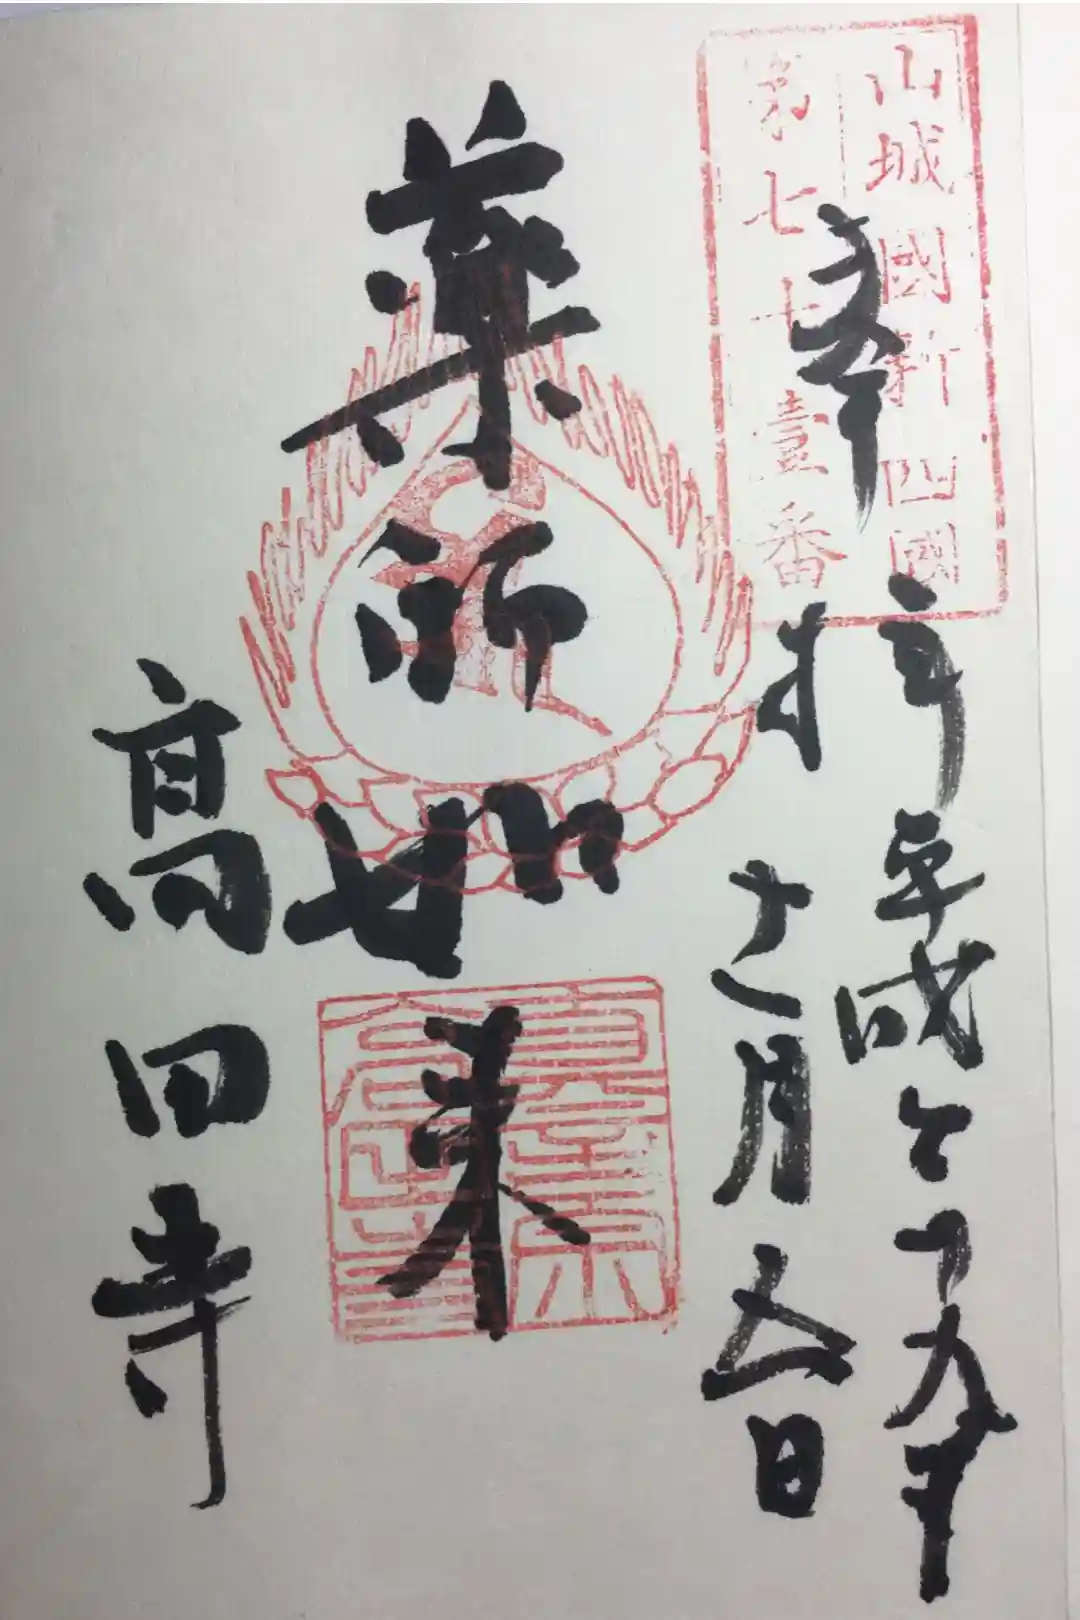 山城國新四國
第七十壹番
奉
拝
平成二十九年
月
日
薬師如来
高田寺